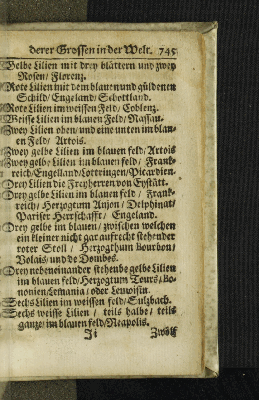 derer Grossen in der Welt. 745
Gelbe Lilien mit drey blättern und zwey
Rosen / Florenz.
Rote Lilien mit dem blauen und güldenen
Schild / Engeland / Schottland.
Rote Lilien im weissen Feld / Coblenz.
Weisse Lilien im blauen Feld / Nassau.
Zwey Lilien oben / und eine unten im blau-
en Feld / Artois.
Zwey gelbe Lilien im blauen feld / Artois
Zwey gelbe Lilien im blauen feld / Frank-
reich / Engelland / Lottringen / Picardien.
Drey Lilien die Freyherren von Eystätt.
Drey gelbe Lilien im blauen feld / Frank-
reich / Herzogtum Anjou / Delphinat /
Pariser Herrschafft / Engeland.
Drey gelbe im blauen / zwischen welchen
ein kleiner nicht gar aufrecht stehender
roter Stoll / Herzogthum Bourbon /
Valais / und de Dombes.
Drey nebeneinander stehende gelbe Lilien
im blauen feld / Herzogtum Tours / Bo-
nonien / Lemania / oder
Sechs Lilien im weissen feld / Sulzbach.
Sechs weisse Lilien / teils halbe / teils
ganze / im blauen feld / Neapolis.
Ii Zwölf